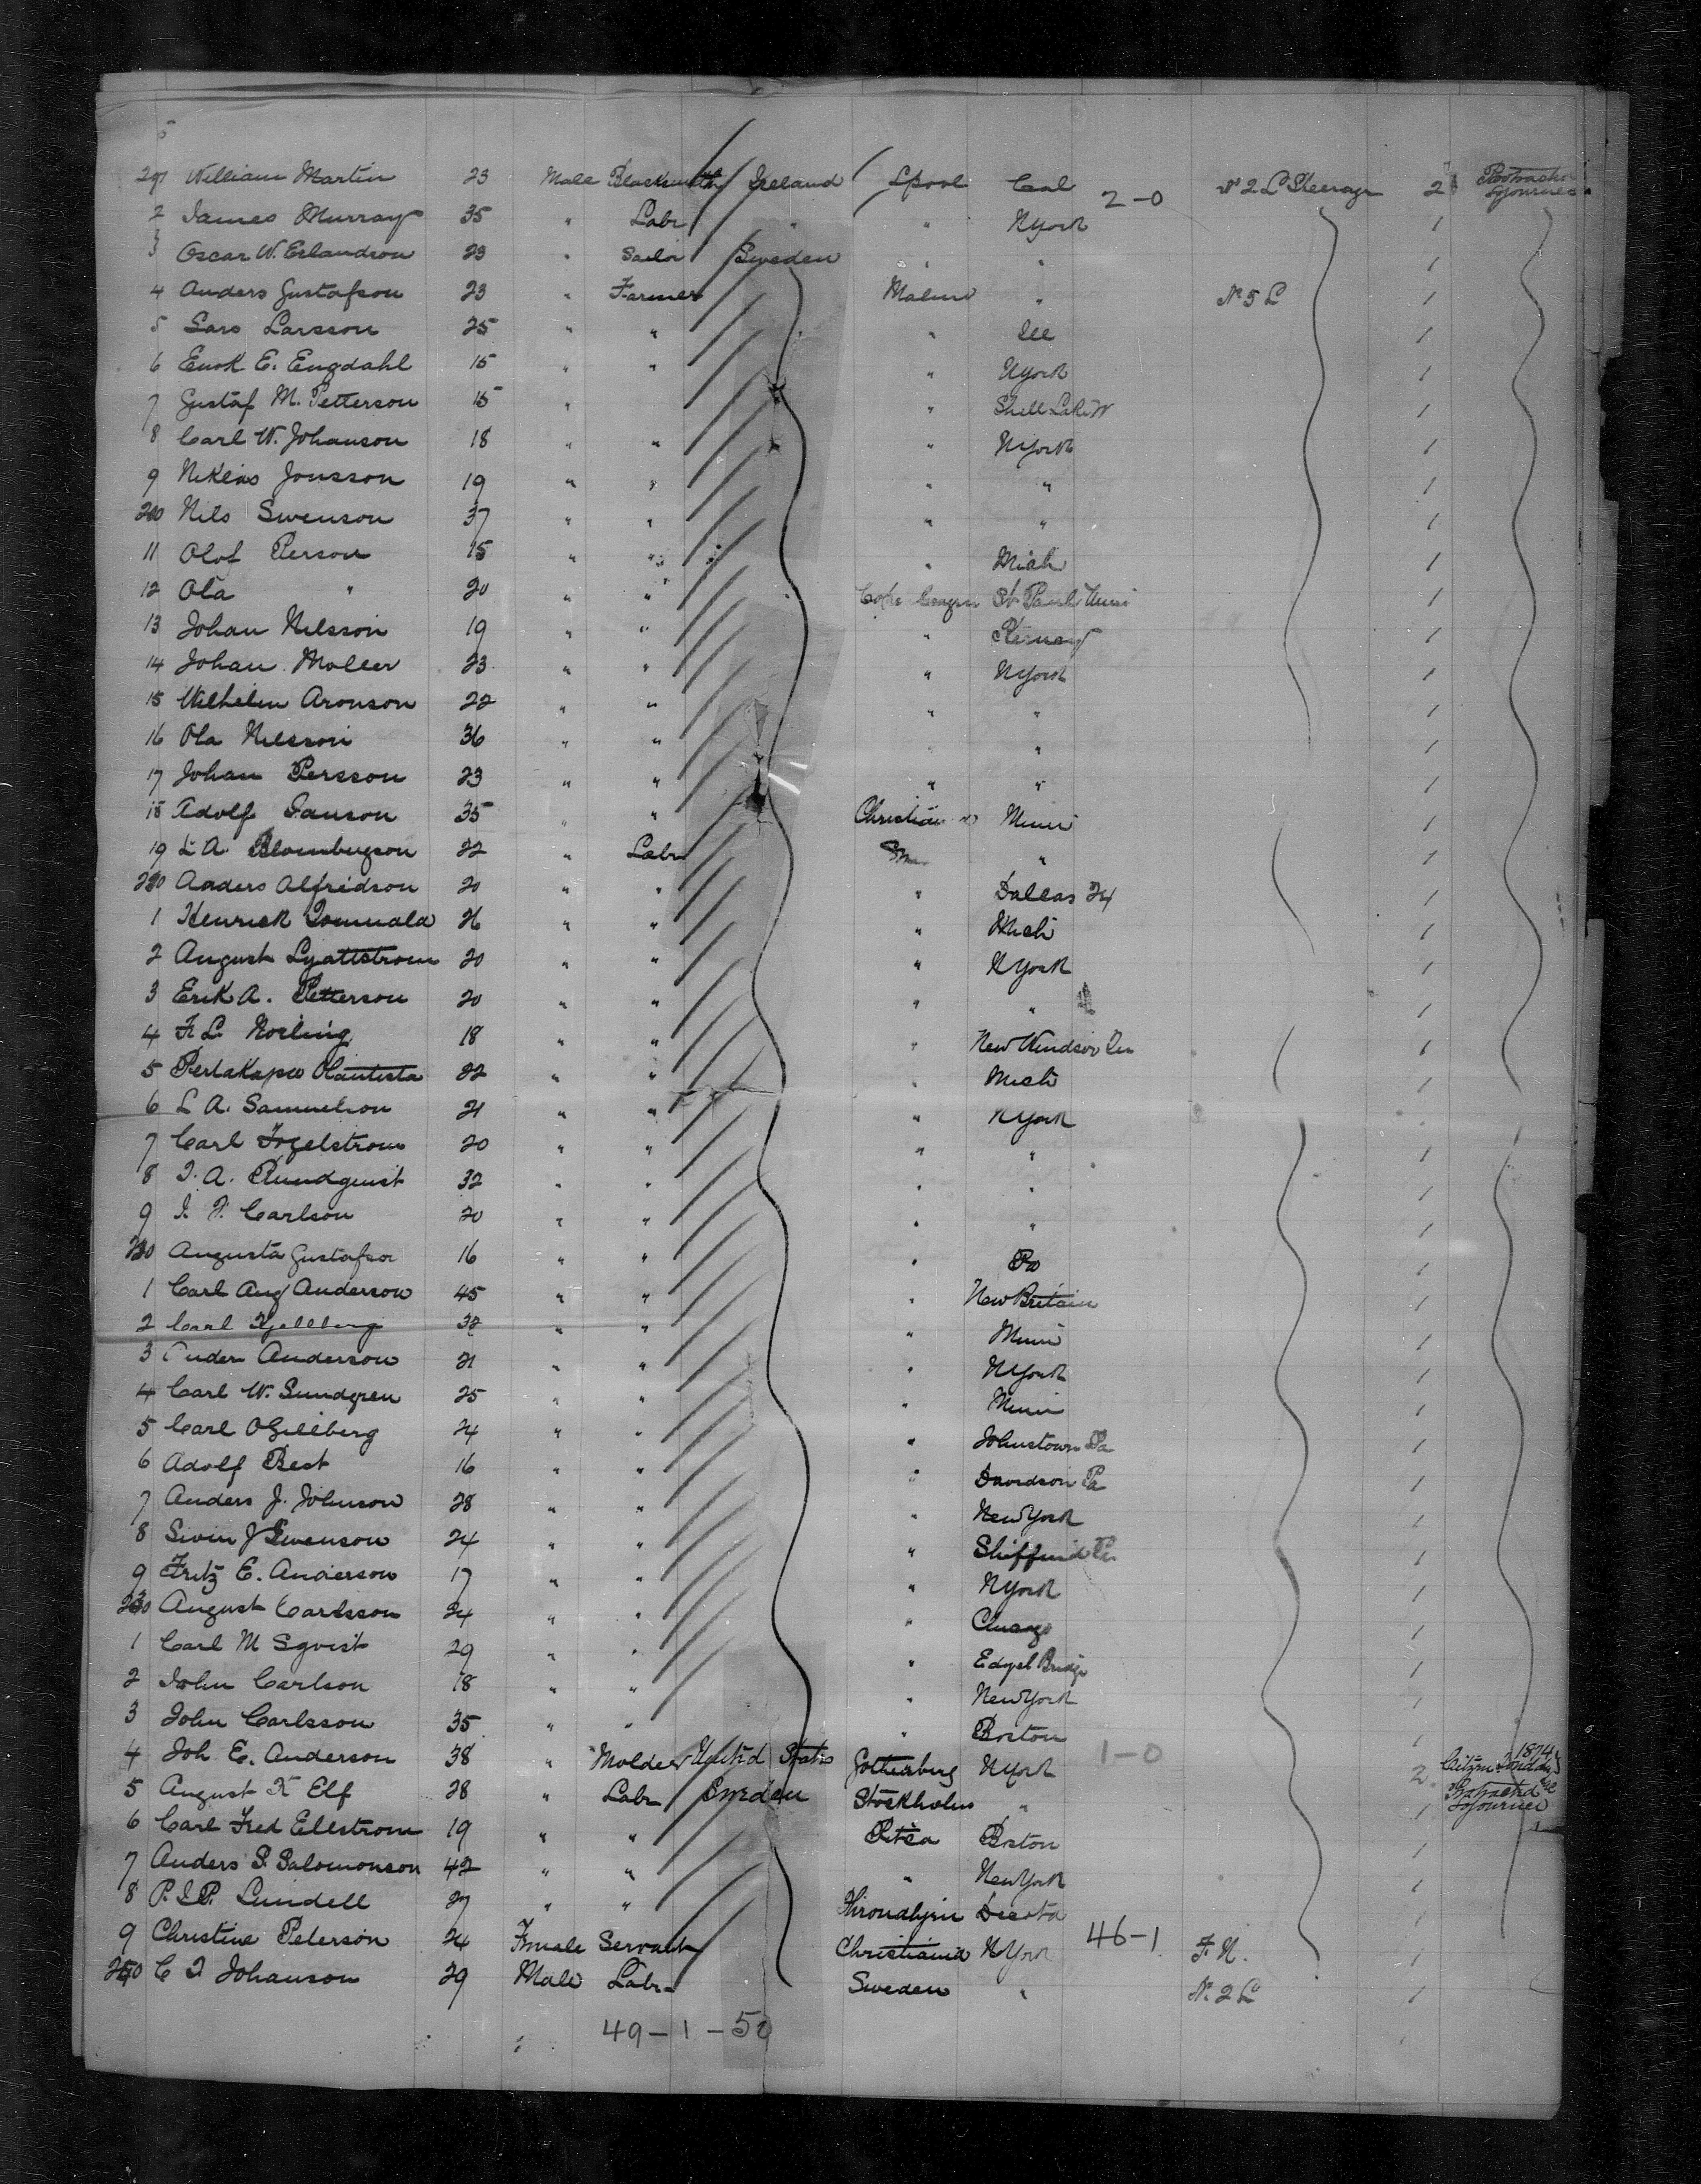 201 William Martin 23 Male Blacksmith Ireland Lpool Cal 2-0 No 2 L Steerage 2 Protracted Sojourner
2 James Murray 35 " Labr " " NYork 1
3 Oscar W. Erlandson 23 " Sailor Sweden " " 1
4 Anders Gustafson 23 " Farmer Malmo " No 5 L 1
5 Lars Larsson 25 " " " Ill 1
6 Enok E. Engdahl 15 " " " NYork 1
7 Gustaf M. Petterson 15 " " Shell Lake W 1
8 Carl W. Johanson 18 " " " NYork 1
9 Niklas Jonsson 19 " " " " 1
210 Nils Swenson 37 " " " " 1
11 Olof Person 15 " " " Mich 1
12 Ola " 20 " " St Paul Minn 1
13 Johan Nilsson 19 " " " 1
14 Johan Moller 23 " " " NYork 1
15 Wilhelm Aronson 22 " " " " 1
16 Ola Nilsson 36 " " " " 1
17 Johan Persson 23 " " " " 1
18 Adolf Janson 35 " " Christian Minn 1
19 L A. 22 " Labr " 1
220 Anders Alfredson 20 " " " Dallas 1
1 Henrick 26 " " " Mich 1
2 August 20 " " " NYork 1
3 Erik A. Petterson 20 " " " " 1
4 F. L. Norling 18 " " " New Windsor 1
5 22 " " " Mich 1
6 L A. Samuelson 21 " " " NYork 1
7 Carl Fogelstrom 20 " " " " 1
8 J. A. Rundquist 32 " " " " 1
9 J. F. Carlson 20 " " " " 1
230 Augusta Gustafson 16 " " " Pa 1
1 Carl Aug Anderson 45 " " " New Britain 1
2 Carl Kjellberg 32 " " " Minn 1
3 Ander Anderson 21 " " " NYork 1
4 Carl W. Sundgren 25 " " " Minn 1
5 Carl O Gillberg 24 " " " Johnstown Pa 1
6 Adolf Best 16 " " " Davidson Pa 1
7 Anders J. Johnson 28 " " " New York 1
8 Swin J Swenson 24 " " " 1
9 Fritz E. Anderson 17 " " " NYork 1
240 August Carlsson 24 " " " Chicago 1
1 Carl M Sqvist 29 " " " 1
2 John Carlson 18 " " " New York 1
3 John Carlsson 35 " " " Boston 1
4 Joh E. Anderson 38 " Molder United States Gottenberg NYork 1-0 2 Citizen 1874
5 August K Elf 28 " Labr Sweden Stockholm " 1 Protracted Sojourner
6 Carl Fred Ellstrom 19 " " Pitea Boston 1
7 Anders P. Salomonson 42 " " " New York 1
8 P. J. P. Lindell 27 " " 1
9 Christine Peterson 24 Female Servant Christiania NYork 46-1 F. N. 1
250 C J Johanson 29 Male Labr Sweden " N. 2 L 1
49-1-50